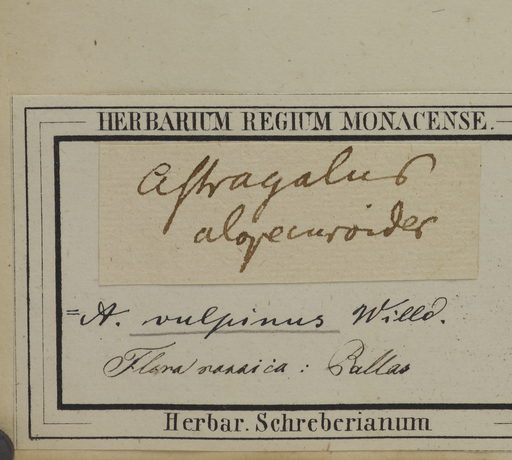 HERBARIUM REGIUM MONACENSE.
Astragalus
alopecuroides
= A. vulpinus Willd.
Flora rossica: Pallas
Herbar. Schreberianum